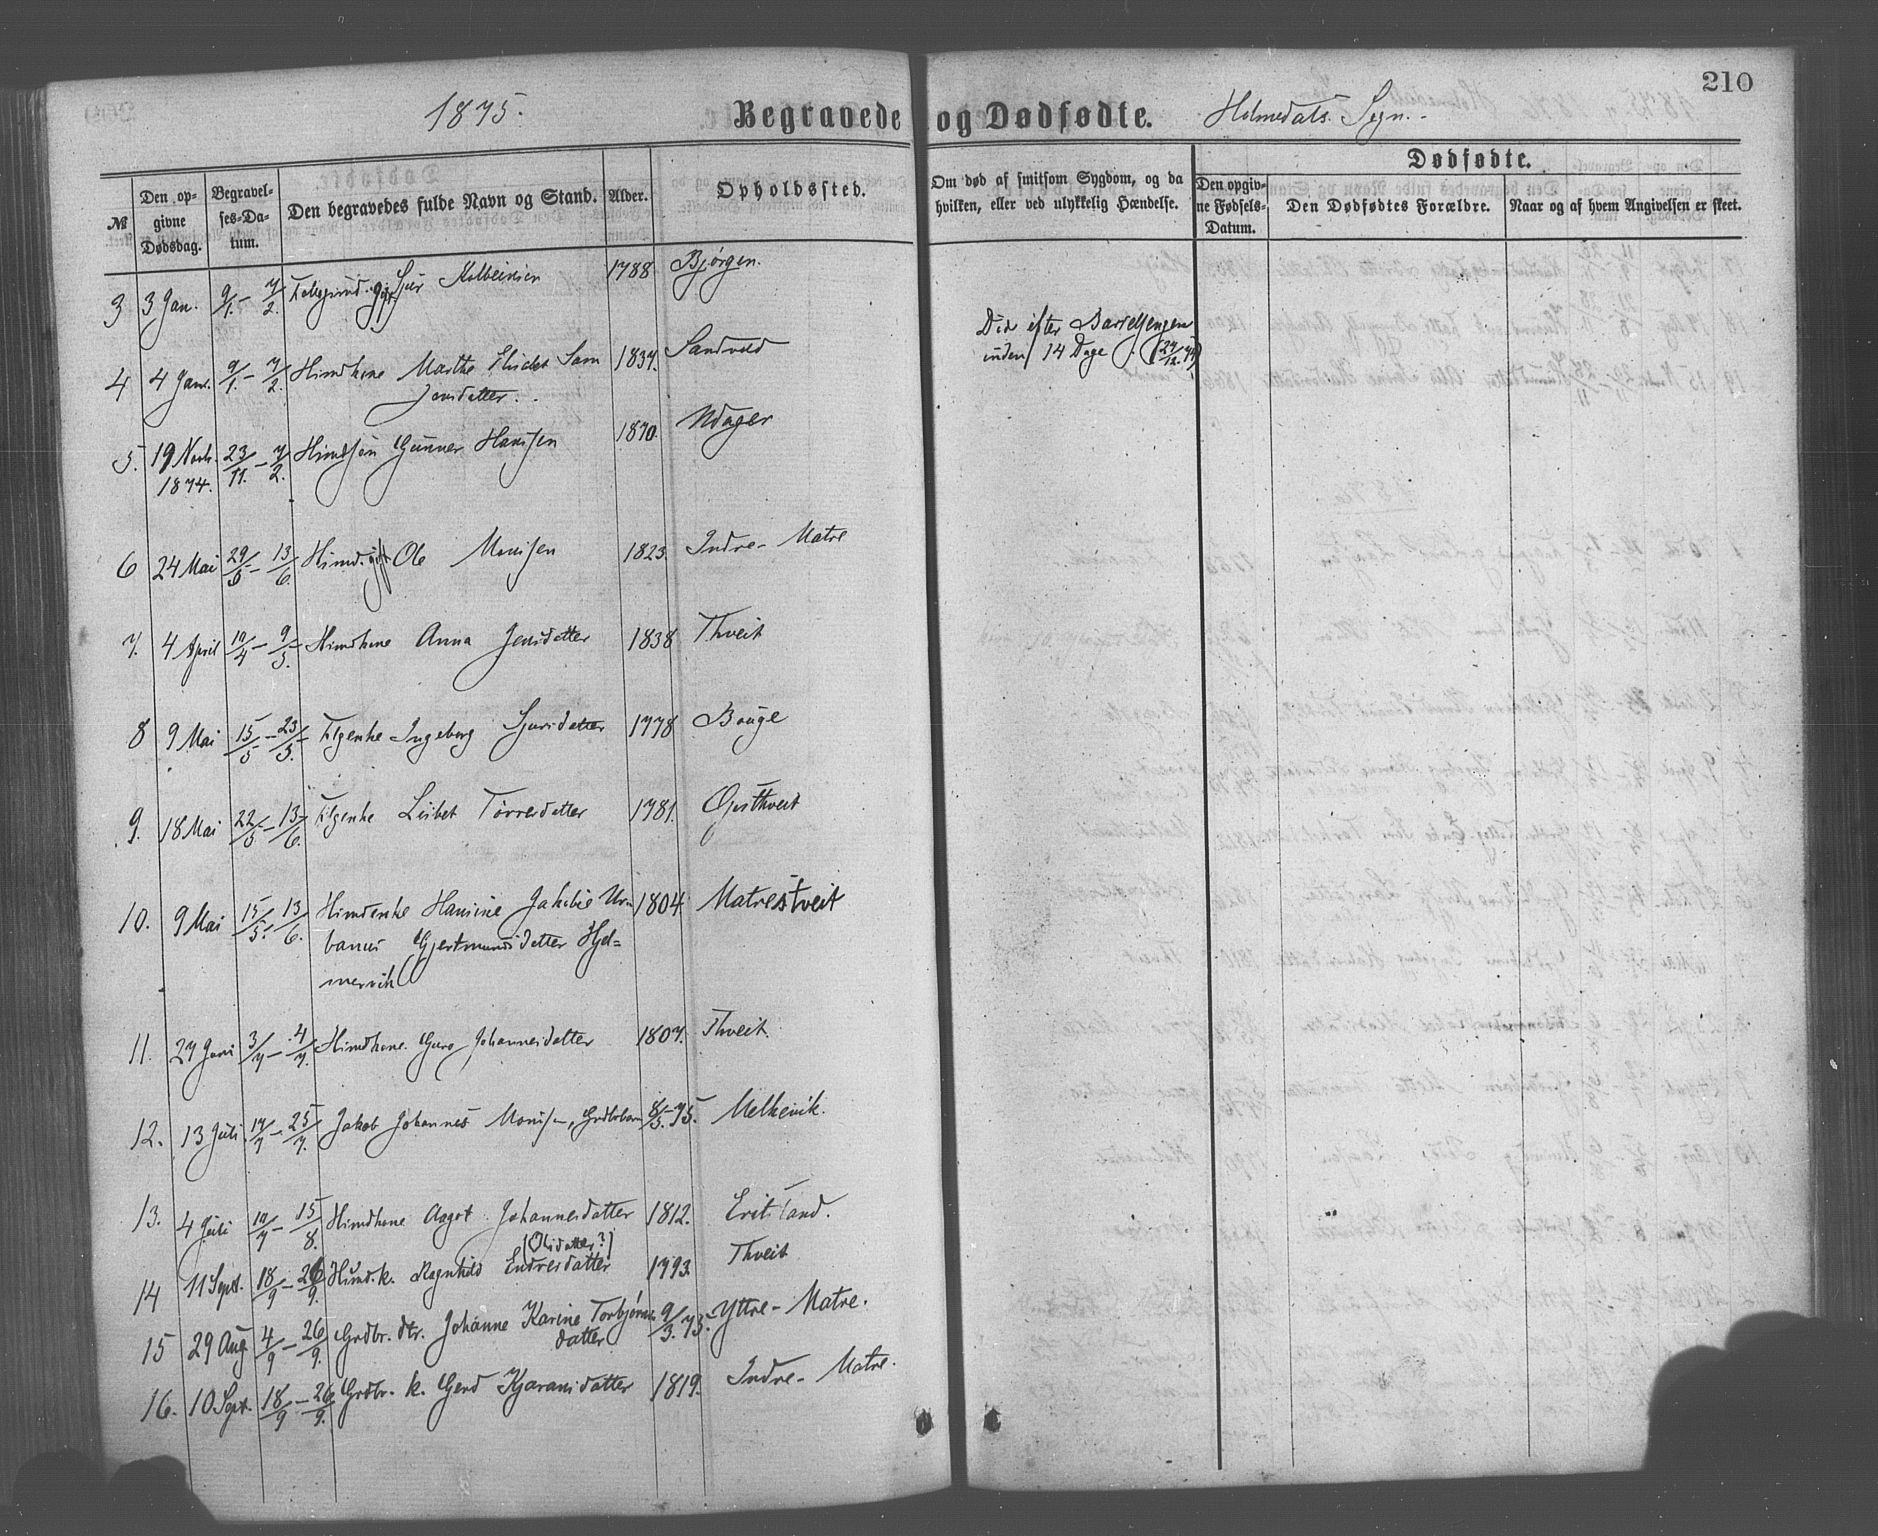 210
1875.
Begravede og Dødfødte.
Holmedals Sogn.
№
Den op-
givne
Dødsdag.
Begravel-
ses-Da-
tum.
Den begravedes fulde Navn og Stand.
Alder.
Opholdssted.
Om død af smitsom Sygdom, og da
hvilken, eller ved ulykkelig Hændelse.
Dødfødte.
Den opgiv-
ne Fødsels-
Datum.
Den Dødfødtes Forældre.
Naar og af hvem Angivelsen er skeet.
3 3 Jan. 9/1. – 7/2. Sjur Kolbeinsen 1788 Bjørgen.
4 4 Jan. 9/1. – 7/2. Hmdkone Marthe Sam 1837. Sandvold Død efter Barselsengen
jonsdatter. inden 14 Dage
5. 19 Novb. 23/11. – 7/2. Hmdsøn Gunner Hansen 1870. Udager
1874.
6 24 Mai 29/5 – 13/6. Hmd. gift Ole Monsen 1823. Indre-Matre
7. 4 April 10/4 – 9/5. Hmdkone Anna Jensdatter 1838 Thveit
8 9 Mai 15/5 – 23/5. Flgenke Ingeborg Sjursdatter 1778 Bouge
9. 18 Mai 22/5 – 13/6. Flgenke Lisbet Tørresdatter 1781. Opsthveit
10. 9 Mai 15/5. – 13/6. Hmdenke Hansine Jakobie Ur- 1804 Matrestveit
banus Gjertmundsdatter Hjel-
mervik
11. 27 Juni 3/7 – 4/7. Hmdkone Guro Johannesdatter 1807. Thveit
12. 13 Juli 17/7 – 25/7. Jakob Johannes Monsen, Grdbrbarn 8/5.–75. Melkevik.
13. 4 Juli 10/7 – 15/8. Hmdkone Aagot Johannesdatter 1812. Eritsland.
(Olsdatter?)
14 11 Sept. 18/9 – 26/9. Hmd.k. Ragnhild Endresdatter 1793. Thveit
15 29 Aug 4/9 – 26/9. Grdbr. dtr. Johanne Karine Torbjørns 9/3.75. Yttre-Matre.
datter
16. 10 Sept. 18/9 – 26/9. Grdbr. k. Gjerd Kjaransdatter 1819. Indre-Matre.